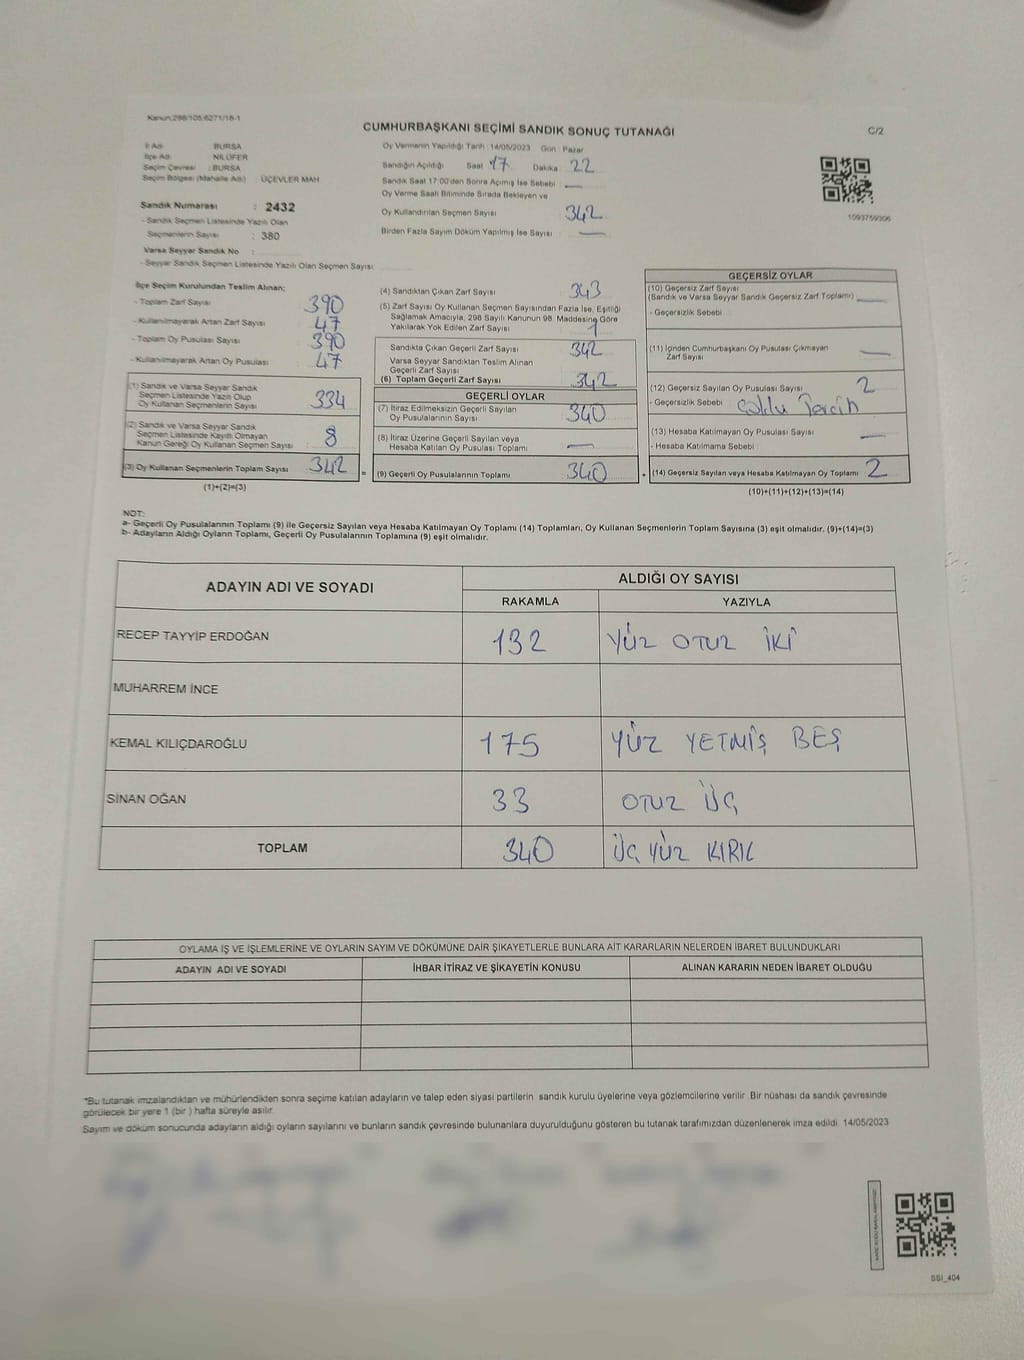 Kanun:298/105;6271/18-1
CUMHURBAŞKANI SEÇİMİ SANDIK SONUÇ TUTANAĞI
C/2
İl Adı : BURSA
İlçe Adı : NİLÜFER
Seçim Çevresi : BURSA
Seçim Bölgesi (Mahalle Adı) : ÜÇEVLER MAH
Sandık Numarası : 2432
- Sandık Seçmen Listesinde Yazılı Olan
Seçmenlerin Sayısı : 380
Varsa Seyyar Sandık No :
- Seyyar Sandık Seçmen Listesinde Yazılı Olan Seçmen Sayısı:
Oy Vermenin Yapıldığı Tarih : 14/05/2023 Gün : Pazar
Sandığın Açıldığı Saat 17 Dakika 22
Sandık Saat 17:00'den Sonra Açımış İse Sebebi —
Oy Verme Saati Bitiminde Sırada Bekleyen ve
Oy Kullandırılan Seçmen Sayısı 342
Birden Fazla Sayım Döküm Yapılmış İse Sayısı —
1093759306
İlçe Seçim Kurulundan Teslim Alınan;
- Toplam Zarf Sayısı 390
- Kullanılmayarak Artan Zarf Sayısı 47
- Toplam Oy Pusulası Sayısı 390
- Kullanılmayarak Artan Oy Pusulası 47
(1) Sandık ve Varsa Seyyar Sandık
Seçmen Listesinde Yazılı Olup
Oy Kullanan Seçmenlerin Sayısı 334
(2) Sandık ve Varsa Seyyar Sandık
Seçmen Listesinde Kayıtlı Olmayan
Kanun Gereği Oy Kullanan Seçmen Sayısı : 8
(3) Oy Kullanan Seçmenlerin Toplam Sayısı 342 =
(1)+(2)=(3)
(4) Sandıktan Çıkan Zarf Sayısı 343
(5) Zarf Sayısı Oy Kullanan Seçmen Sayısından Fazla İse, Eşitliği
Sağlamak Amacıyla, 298 Sayılı Kanunun 98. Maddesine Göre
Yakılarak Yok Edilen Zarf Sayısı 1
Sandıkta Çıkan Geçerli Zarf Sayısı 342
Varsa Seyyar Sandıktan Teslim Alınan
Geçerli Zarf Sayısı
(6) Toplam Geçerli Zarf Sayısı 342
GEÇERLİ OYLAR
(7) İtiraz Edilmeksizin Geçerli Sayılan
Oy Pusulalarının Sayısı 340
(8) İtiraz Üzerine Geçerli Sayılan veya
Hesaba Katılan Oy Pusulası Toplamı —
(9) Geçerli Oy Pusulalarının Toplamı 340 +
GEÇERSİZ OYLAR
(10) Geçersiz Zarf Sayısı
(Sandık ve Varsa Seyyar Sandık Geçersiz Zarf Toplamı) —
- Geçersizlik Sebebi
(11) İçinden Cumhurbaşkanı Oy Pusulası Çıkmayan
Zarf Sayısı —
(12) Geçersiz Sayılan Oy Pusulası Sayısı 2
- Geçersizlik Sebebi Çoklu Tercih
(13) Hesaba Katılmayan Oy Pusulası Sayısı —
- Hesaba Katılmama Sebebi
(14) Geçersiz Sayılan veya Hesaba Katılmayan Oy Toplamı 2
(10)+(11)+(12)+(13)=(14)
NOT:
a- Geçerli Oy Pusulalarının Toplamı (9) ile Geçersiz Sayılan veya Hesaba Katılmayan Oy Toplamı (14) Toplamları, Oy Kullanan Seçmenlerin Toplam Sayısına (3) eşit olmalıdır. (9)+(14)=(3)
b- Adayların Aldığı Oyların Toplamı, Geçerli Oy Pusulalarının Toplamına (9) eşit olmalıdır.
ADAYIN ADI VE SOYADI
ALDIĞI OY SAYISI
RAKAMLA YAZIYLA
RECEP TAYYİP ERDOĞAN 132 YÜZ OTUZ İKİ
MUHARREM İNCE
KEMAL KILIÇDAROĞLU 175 YÜZ YETMİŞ BEŞ
SİNAN OĞAN 33 OTUZ ÜÇ
TOPLAM 340 ÜÇ YÜZ KIRK
OYLAMA İŞ VE İŞLEMLERİNE VE OYLARIN SAYIM VE DÖKÜMÜNE DAİR ŞİKAYETLERLE BUNLARA AİT KARARLARIN NELERDEN İBARET BULUNDUKLARI
ADAYIN ADI VE SOYADI İHBAR İTİRAZ VE ŞİKAYETİN KONUSU ALINAN KARARIN NEDEN İBARET OLDUĞU
*Bu tutanak imzalandıktan ve mühürlendikten sonra seçime katılan adayların ve talep eden siyasi partilerin sandık kurulu üyelerine veya gözlemcilerine verilir. Bir nüshası da sandık çevresinde
görülecek bir yere 1 (bir ) hafta süreyle asılır.
Sayım ve döküm sonucunda adayların aldığı oyların sayılarını ve bunların sandık çevresinde bulunanlara duyurulduğunu gösteren bu tutanak tarafımızdan düzenlenerek imza edildi. 14/05/2023
SSI_404